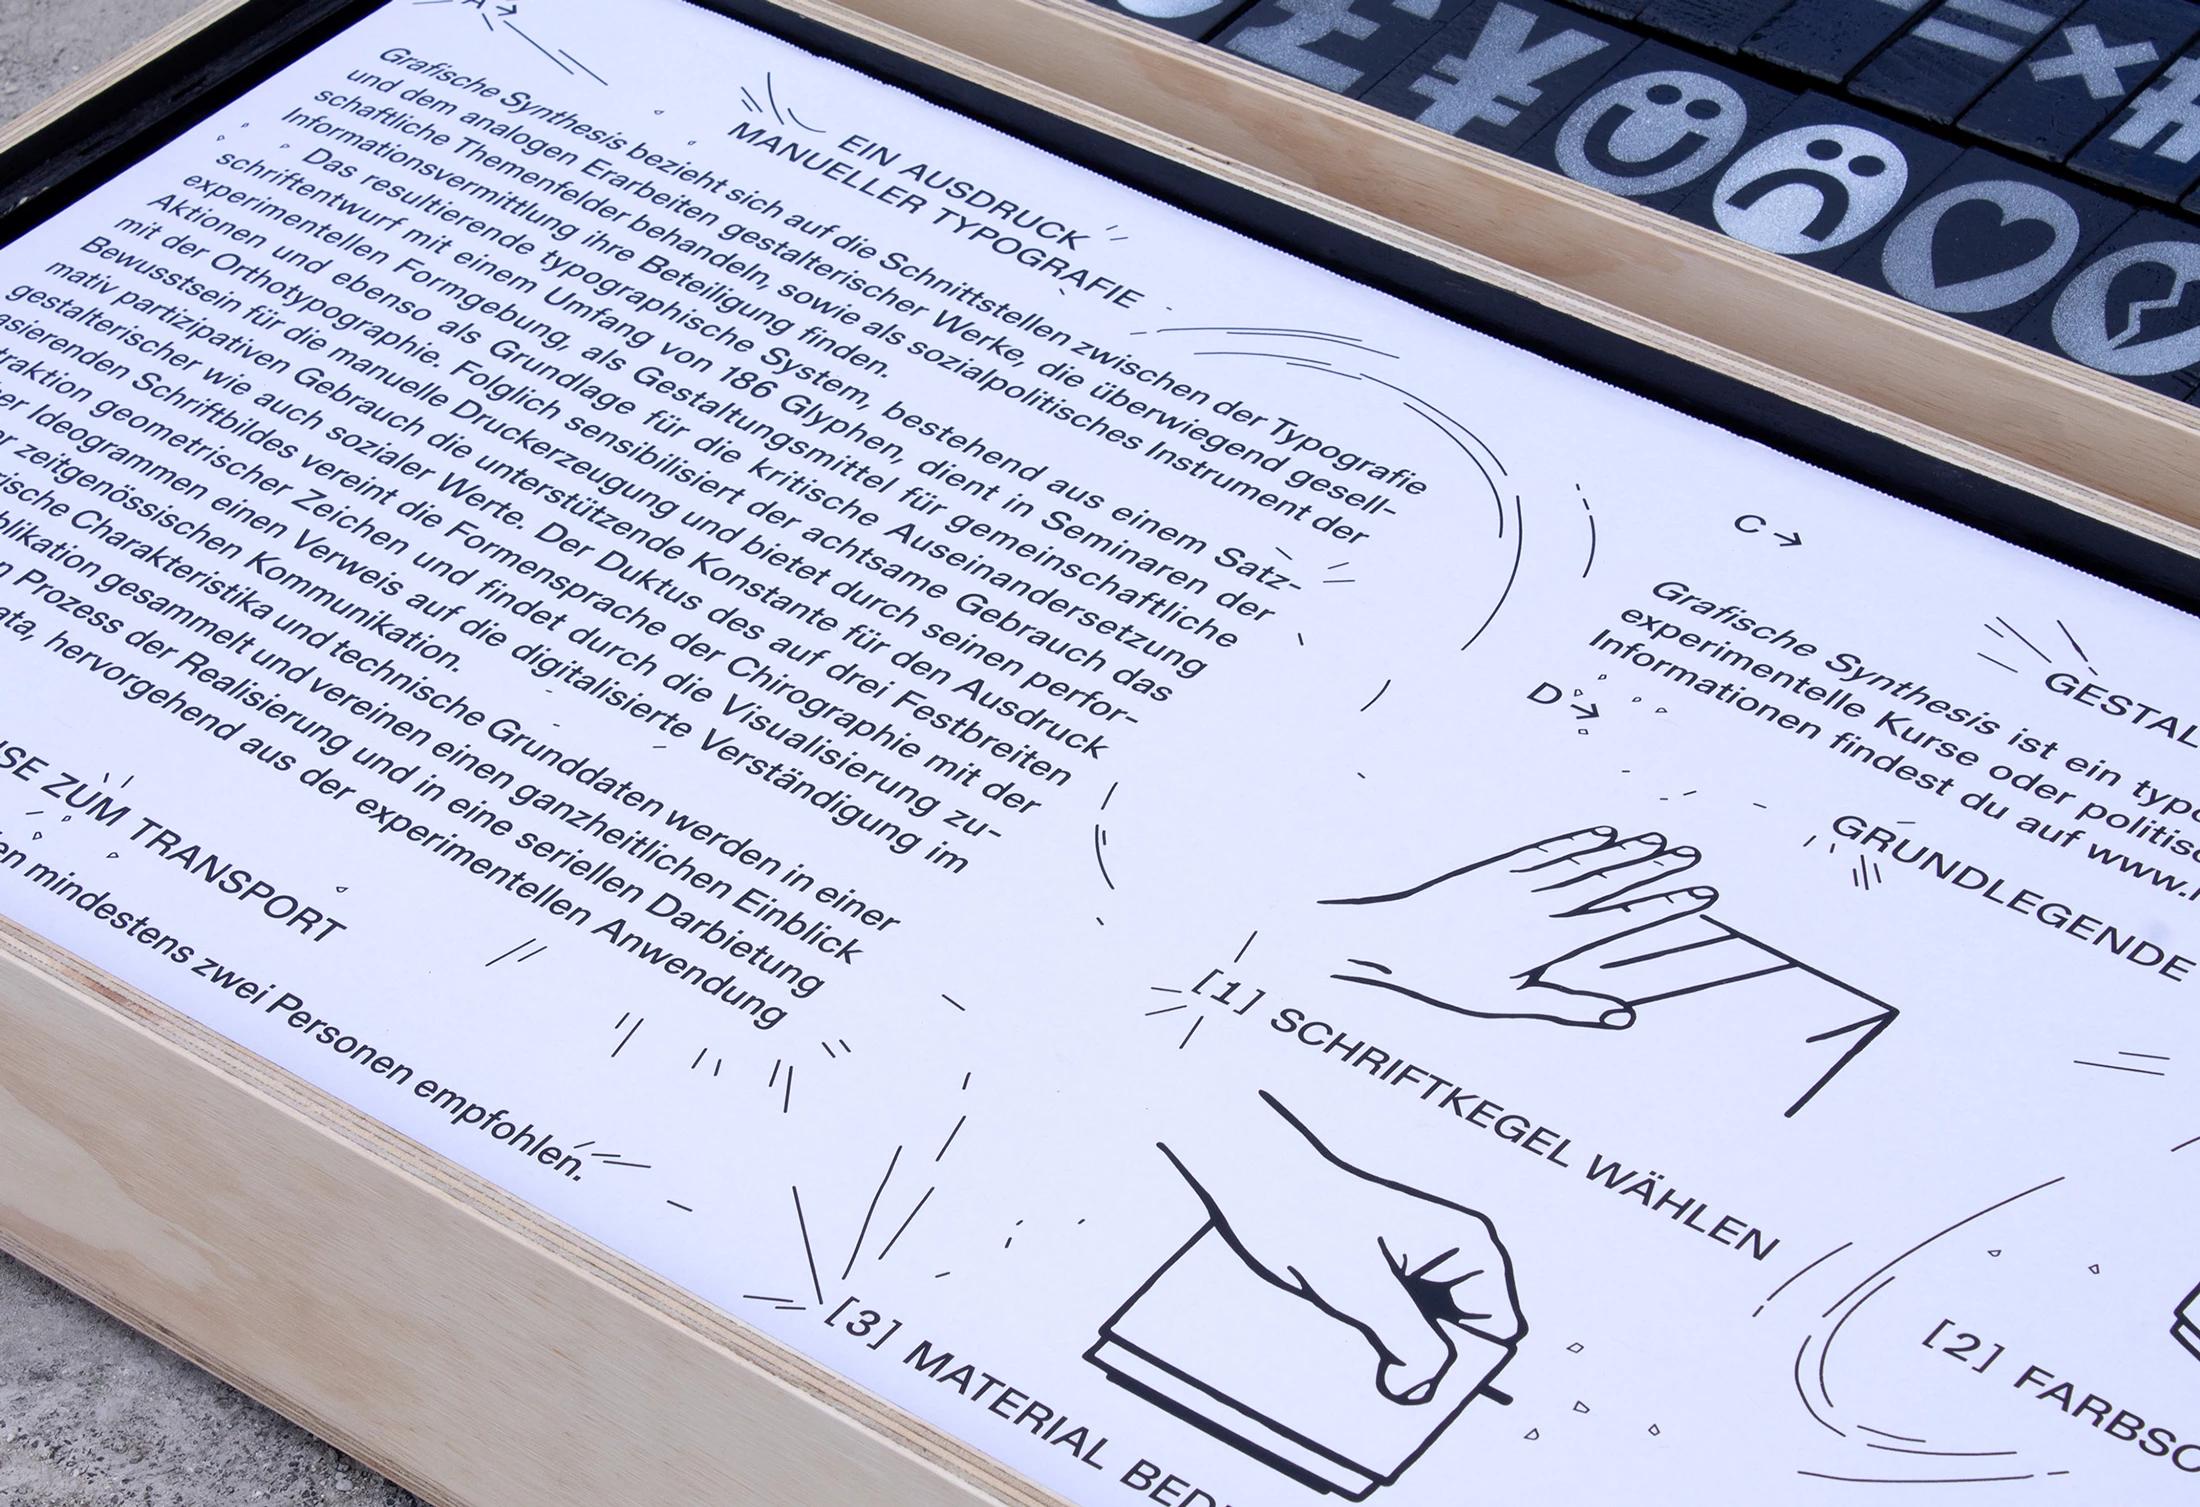 A →
EIN AUSDRUCK
MANUELLER TYPOGRAFIE
Grafische Synthesis bezieht sich auf die Schnittstellen zwischen der Typografie
und dem analogen Erarbeiten gestalterischer Werke, die überwiegend gesell-
schaftliche Themenfelder behandeln, sowie als sozialpolitisches Instrument der
Informationsvermittlung ihre Beteiligung finden.
Das resultierende typographische System, bestehend aus einem Satz-
schriftentwurf mit einem Umfang von 186 Glyphen, dient in Seminaren der
experimentellen Formgebung, als Gestaltungsmittel für gemeinschaftliche
Aktionen und ebenso als Grundlage für die kritische Auseinandersetzung
mit der Orthotypographie. Folglich sensibilisiert der achtsame Gebrauch das
Bewusstsein für die manuelle Druckerzeugung und bietet durch seinen perfor-
mativ partizipativen Gebrauch die unterstützende Konstante für den Ausdruck
gestalterischer wie auch sozialer Werte. Der Duktus des auf drei Festbreiten
asierenden Schriftbildes vereint die Formensprache der Chirographie mit der
traktion geometrischer Zeichen und findet durch die Visualisierung zu-
er Ideogrammen einen Verweis auf die digitalisierte Verständigung im
zeitgenössischen Kommunikation.
rische Charakteristika und technische Grunddaten werden in einer
blikation gesammelt und vereinen einen ganzheitlichen Einblick
n Prozess der Realisierung und in eine seriellen Darbietung
ata, hervorgehend aus der experimentellen Anwendung
SE ZUM TRANSPORT
en mindestens zwei Personen empfohlen.
C →
GESTAL
Grafische Synthesis ist ein typo
experimentelle Kurse oder politisc
Informationen findest du auf www.
D →
GRUNDLEGENDE
[1] SCHRIFTKEGEL WÄHLEN
[2] FARBSC
[3] MATERIAL BED
£ ¥
= ×